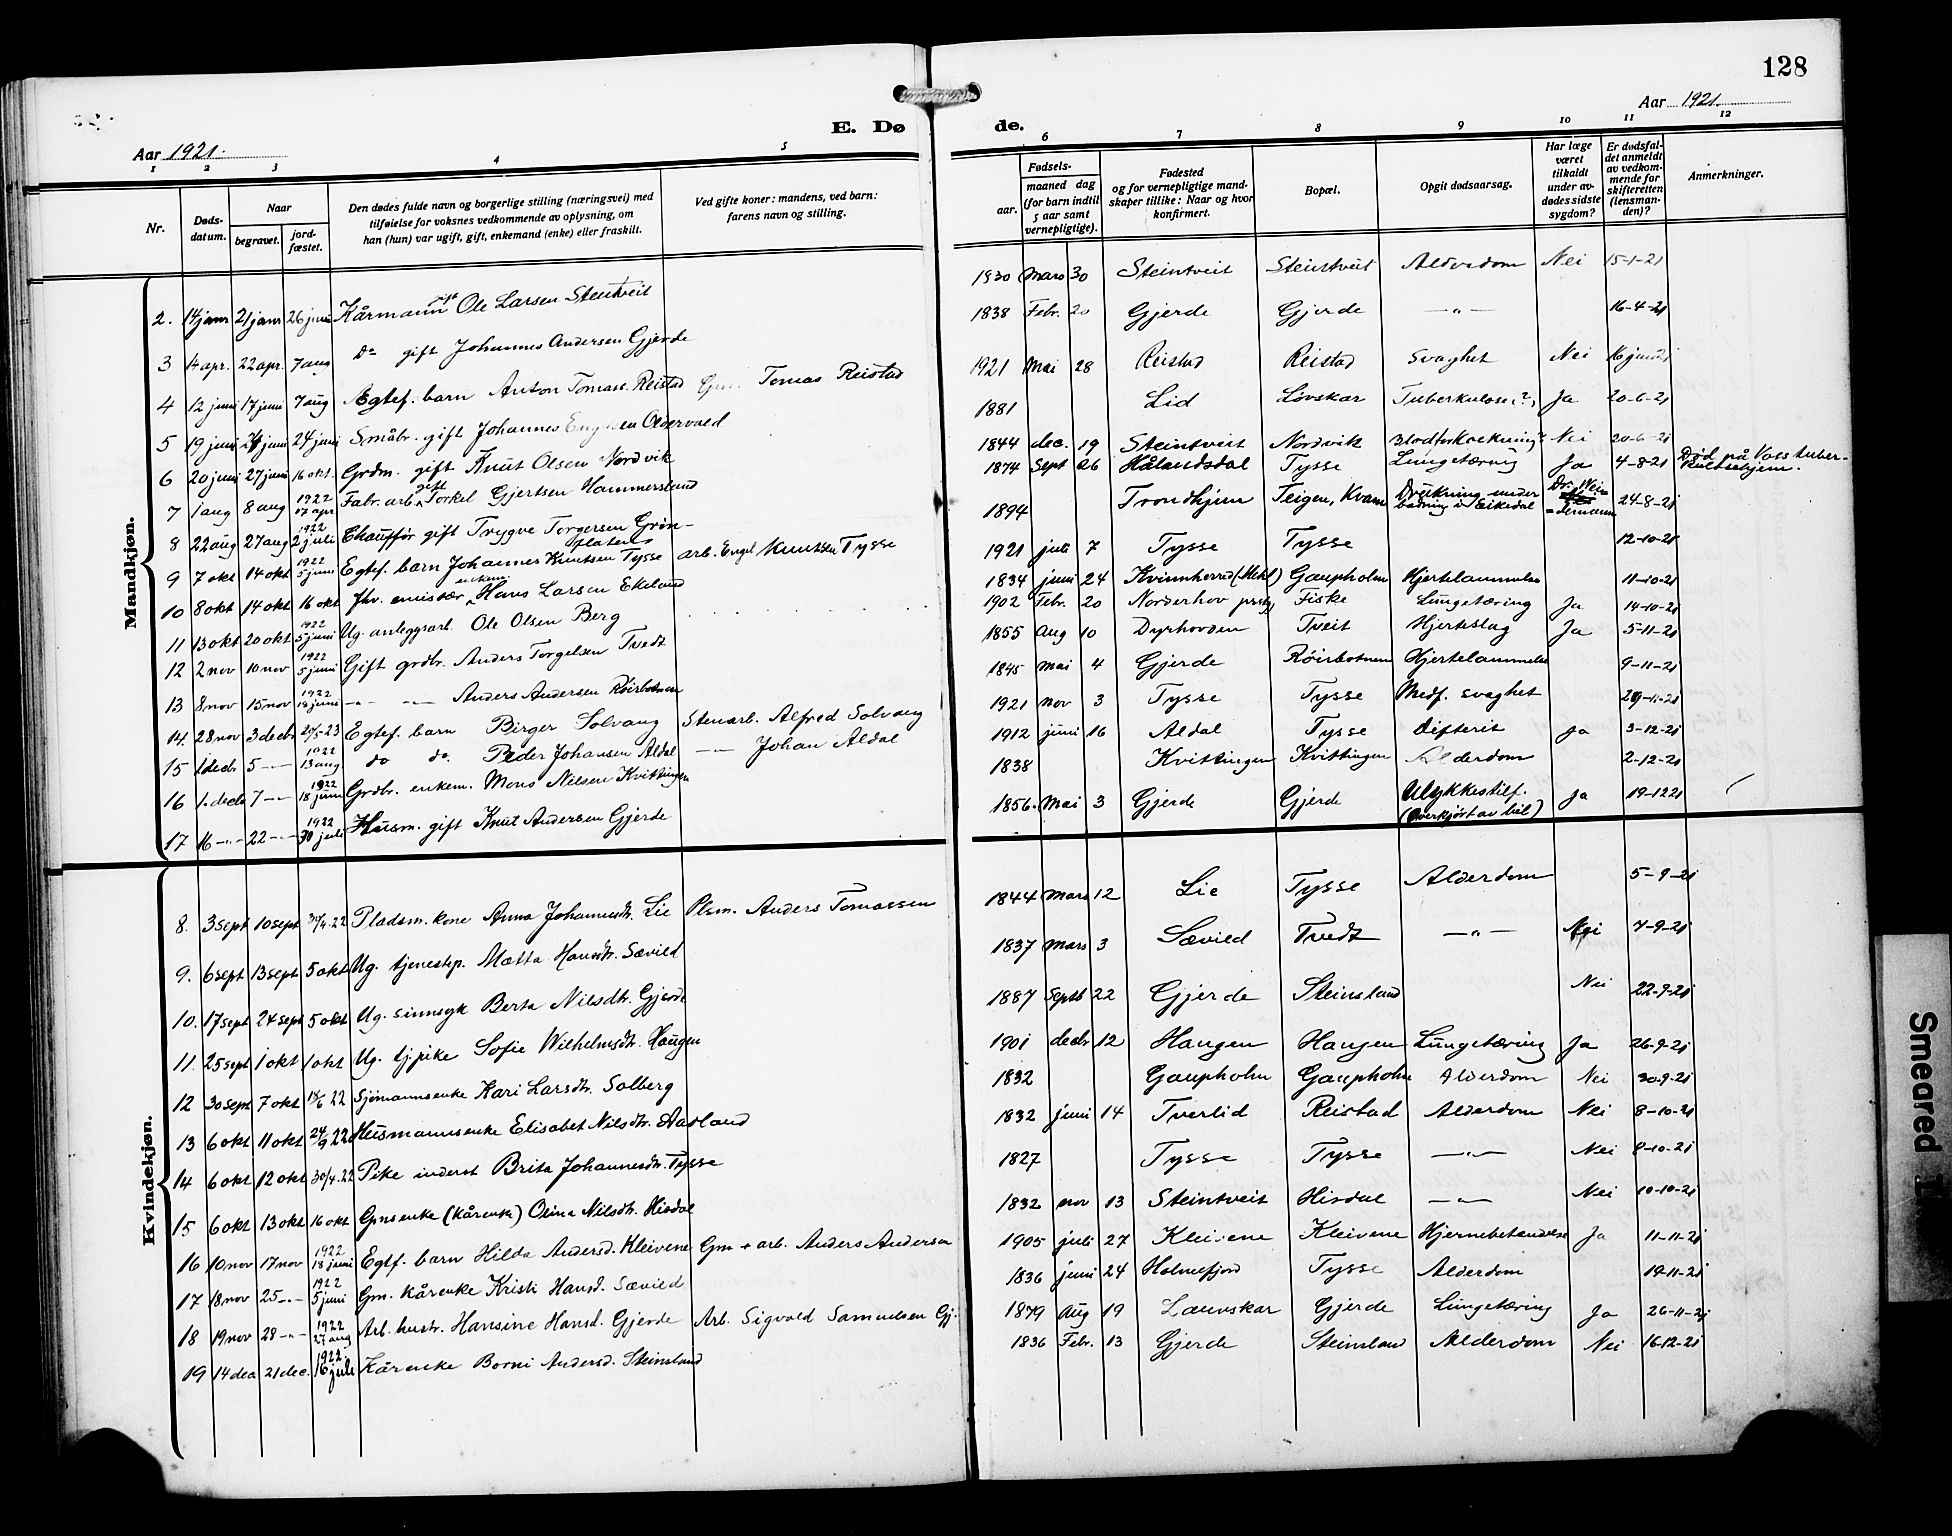 128
Aar 1921.
E. Døde.
Aar 1921.
1 2 3 4 5 6 7 8 9 10 11 12
Nr.
Døds-datum.
Naar
begravet.
jord-fæstet.
Den dødes fulde navn og borgerlige stilling (næringsvei) med
tilføielse for voksnes vedkommende av oplysning, om
han (hun) var ugift, gift, enkemand (enke) eller fraskilt.
Ved gifte koner: mandens, ved barn:
farens navn og stilling.
Fødsels-
aar. maaned dag
(for barn indtil
5 aar samt
vernepligtige).
Fødested
og for vernepligtige mand-
skaper tillike: Naar og hvor
konfirmert.
Bopæl.
Opgit dødsaarsag.
Har læge
været
tilkaldt
under av-
dødes sidste
sygdom?
Er dødsfal-
det anmeldt
av vedkom-
mende for
skifteretten
(lensman-
den)?
Anmerkninger.
Mandkjøn.
2. 14 janr 21 janr 26 juni Kårmann gift Ole Larsen Steintveit 1930 Mars 30 Steintveit Steintveit Alderdom Nei 15-1-21
3 14 apr. 22 apr. 7 aug Do gift Johannes Andersen Gjerde 1838 Febr. 20 Gjerde Gjerde -"- 16-4-21
4 12 juni 17 juni 7 aug Egtef. barn Anton Tomass. Reistad Tomas Reistad 1921 Mai 28 Reistad Reistad Svaghet Nei 16 juni 21
5 19 juni 24 juni 24 juni Småbr. gift Johannes 1881 Lid Løvskar Tuberkulose (?) Ja 20-6-21
6 20 juni 27 juni 16 okt. Grdm. gift Knut Olsen Nordvik 1844 dec. 19 Steintveit Nordvik Blodforkoekning? Nei 20-6-21
7 1 aug 8 aug 1922 17 apr Fabr. arb. gift Torkel Gjertsen Hammersland 1874 Sept 26 Hålandsdal Tysse Lungetæring Ja 4-8-21 Død på Voss tuber-kulosehjem.
8 22 aug 27 aug 1922 2 juli Chauffør gift Trygve Torgersen Grøn-platens 1894 Trondhjem Teigen, Kvam Drukning under badning i Eikedal Dr. Nei 24-8-21
9 7 okt 14 okt 1922 5 juni Egtef. barn Johannes Knutsen Tysse arb. Engel Knutsen Tysse 1921 juli 7 Tysse Tysse 12-10-21
10 8 okt 14 okt 16 okt Fhv. emisær enkem. Hans Larsen Ekeland 1834 juni 24 Kvinnherred (Mehl) Gaupholm Hjertelammelse 11-10-21
11 13 okt 20 okt 1922 5 juni Ug. anleggsarb. Ole Olsen Berg 1902 Febr. 20 Norderhov prstgj Fiske Lungetæring Ja 14-10-21
12 2 nov 10 nov 1922 5 juni Gift grdbr. Anders Torgelsen Tvedt 1855 Aug 10 Dyrhovden Tveit Hjerteslag Ja 5-11-21
13 8 nov 15 nov 1922 18 juni -"- -"- Anders Andersen Røirbotnen 1845 Mai 4 Gjerde Røirbotnen Hjertelammelse 9-11-21
14. 28 nov 3 decb 20/5-23 Egtef. barn Birger Solvang Stenarb. Alfred Solvang 1921 nov 3 Tysse Tysse Medf. svaghet 29-11-21
15 1 decb 5 -"- 1922 13 aug do do. Peder Johansen Aldal -"- Johan Aldal 1912 juni 16 Aldal Tysse Difterit Ja 3-12-21
16 1. decb 7 -"- 1922 18 juni Grdbr. enkem. Mons Nilsen Kvittingen 1838 Kvittingen Kvittingen Alderdom 2-12-21
17 16 -"- 22 -"- 1922 30 juli Husm. gift Knut Andersen Gjerde 1856. Mai 3 Gjerde Gjerde Ulykkestilf. (Overkjørt av bil) Ja 19-12 21
Kvindekjøn.
8. 3 sept 10 sept 30/4.22 Pladsm. kone Anna Johannesdt. Lie Plsm. Anders Tomassen 1844 Mars 12 Lie Tysse Alderdom 5-9-21
9. 6 sept 13 sept 5 okt Ug. tjenestep. Mætta Hansdt. Sævild 1837 Mars 3 Sævild Tvedt -"- Nei 7-9-21
10. 17 sept 24 sept 5 okt Ug. sinnsyk Berta Nilsdt. Gjerde 1887 Septb 22 Gjerde Steinsland Nei 22-9-21
11. 25 sept 1 okt 1 okt Ug. tj.pike Sofie Wilhelmsdt. Haugen 1901 decb 12 Haugen Haugen Lungetæring Ja 26-9-21
12 30 sept 7 okt 18/6 22 Sjømannsenke Kari Larsdt. Solberg 1832 Gaupholm Gaupholm Alderdom Nei 30-9-21
13 6 okt 11 okt 24/9 22 Husmannsenke Elisabet Nilsdt. Aadland 1832 juni 14 Tverlid Reistad Alderdom Nei 8-10-21
14 6 okt 12 okt 30/4.22 Pike inderst Brita Johannesdt. Tysse 1827 Tysse Tysse -"- Nei 8-10-21
15 6 okt 13 okt 16 okt Gmsenke (Kårenke) Olina Nilsdt. Hisdal 1832 nov 13 Steintveit Hisdal -"- Nei 10-10-21
16 10 nov 17 nov 1922 18 juni Egtf. barn Hilda Andersd. Kleivene Gm + arb. Anders Andersen 1905 juli 27 Kleivene Kleivene Hjernebetændelse Ja 11-11-21
17 18 nov 25 -"- 1922 5 juni Gm. kårenke Kristi Hansd. Sævild 1836 juni 24 Holmefjord Tysse Alderdom 19-11-21
18 19 nov 28 -"- 1922 27 aug Arb. hustr. Hansine Hansd. Gjerde Arb. Sigvald Samuelsen Gj. 1879 Aug 19 Launskar Gjerde Lungetæring Ja 26-11-21
19 14 dec 21 dec. 1922 16 juli Kårenke Borni Andersd. Steinsland 1836 Febr. 13 Gjerde Steinsland Alderdom Nei 16-12-21
Smeared